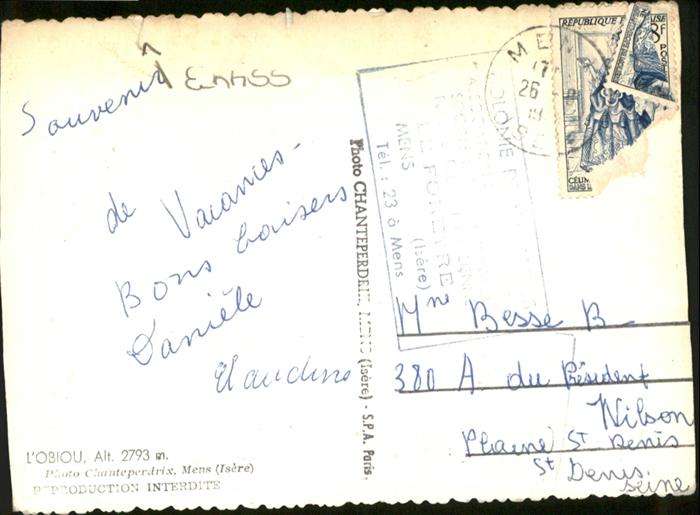 Souvenir
de Vacances -
Bons baisers
Danièle
Claudine
L'OBIOU, Alt. 2793 m.
Photo Chanteperdrix, Mens (Isère)
REPRODUCTION INTERDITE
Photo CHANTEPERDRIX, MENS (Isère) - S.P.A. Paris.
17
26
RÉPUBLIQUE
8F
COLONIE
LE
MENS (Isère)
Tél. : 23 à Mens
Mme Besse B
380 A du Président
Wilson
Plaine St Denis
St Denis.
Seine